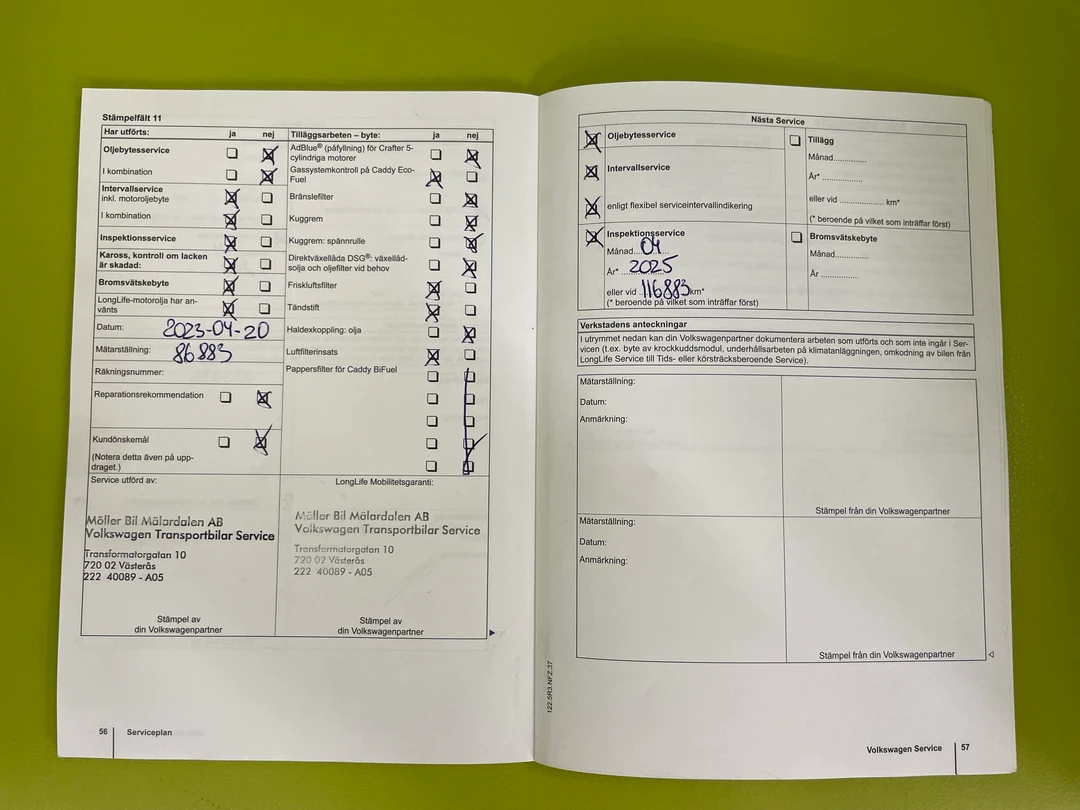 Stämpelfält 11
Har utförts: ja nej
Oljebytesservice
I kombination
Intervallservice
inkl. motoroljebyte
I kombination
Inspektionsservice
Kaross, kontroll om lacken
är skadad:
Bromsvätskebyte
LongLife-motorolja har an-
vänts
Datum: 2023-04-20
Mätarställning: 86883
Räkningsnummer:
Reparationsrekommendation
Kundönskemål
(Notera detta även på upp-
draget.)
Tilläggsarbeten – byte: ja nej
AdBlue® (påfyllning) för Crafter 5-
cylindriga motorer
Gassystemkontroll på Caddy Eco-
Fuel
Bränslefilter
Kuggrem
Kuggrem: spännrulle
Direktväxellåda DSG®: växellåd-
solja och oljefilter vid behov
Friskluftsfilter
Tändstift
Haldexkoppling: olja
Luftfilterinsats
Pappersfilter för Caddy BiFuel
Service utförd av:
Möller Bil Mälardalen AB
Volkswagen Transportbilar Service
Transformatorgatan 10
720 02 Västerås
222 40089 - A05
Stämpel av
din Volkswagenpartner
LongLife Mobilitetsgaranti:
Möller Bil Mälardalen AB
Volkswagen Transportbilar Service
Transformatorgatan 10
720 02 Västerås
222 40089 - A05
Stämpel av
din Volkswagenpartner
56 Serviceplan
Nästa Service
Oljebytesservice
Intervallservice
enligt flexibel serviceintervallindikering
Inspektionsservice
Månad...04
År* ...2025
eller vid ..116883km*
(* beroende på vilket som inträffar först)
Tillägg
Månad............
År* ..............
eller vid ................ km*
(* beroende på vilket som inträffar först)
Bromsvätskebyte
Månad............
År ..............
Verkstadens anteckningar
I utrymmet nedan kan din Volkswagenpartner dokumentera arbeten som utförts och som inte ingår i Ser-
vicen (t.ex. byte av krockkuddsmodul, underhållsarbeten på klimatanläggningen, omkodning av bilen från
LongLife Service till Tids- eller körsträcksberoende Service).
Mätarställning:
Datum:
Anmärkning:
Stämpel från din Volkswagenpartner
Mätarställning:
Datum:
Anmärkning:
Stämpel från din Volkswagenpartner
122.5R3.NFZ.37
Volkswagen Service 57